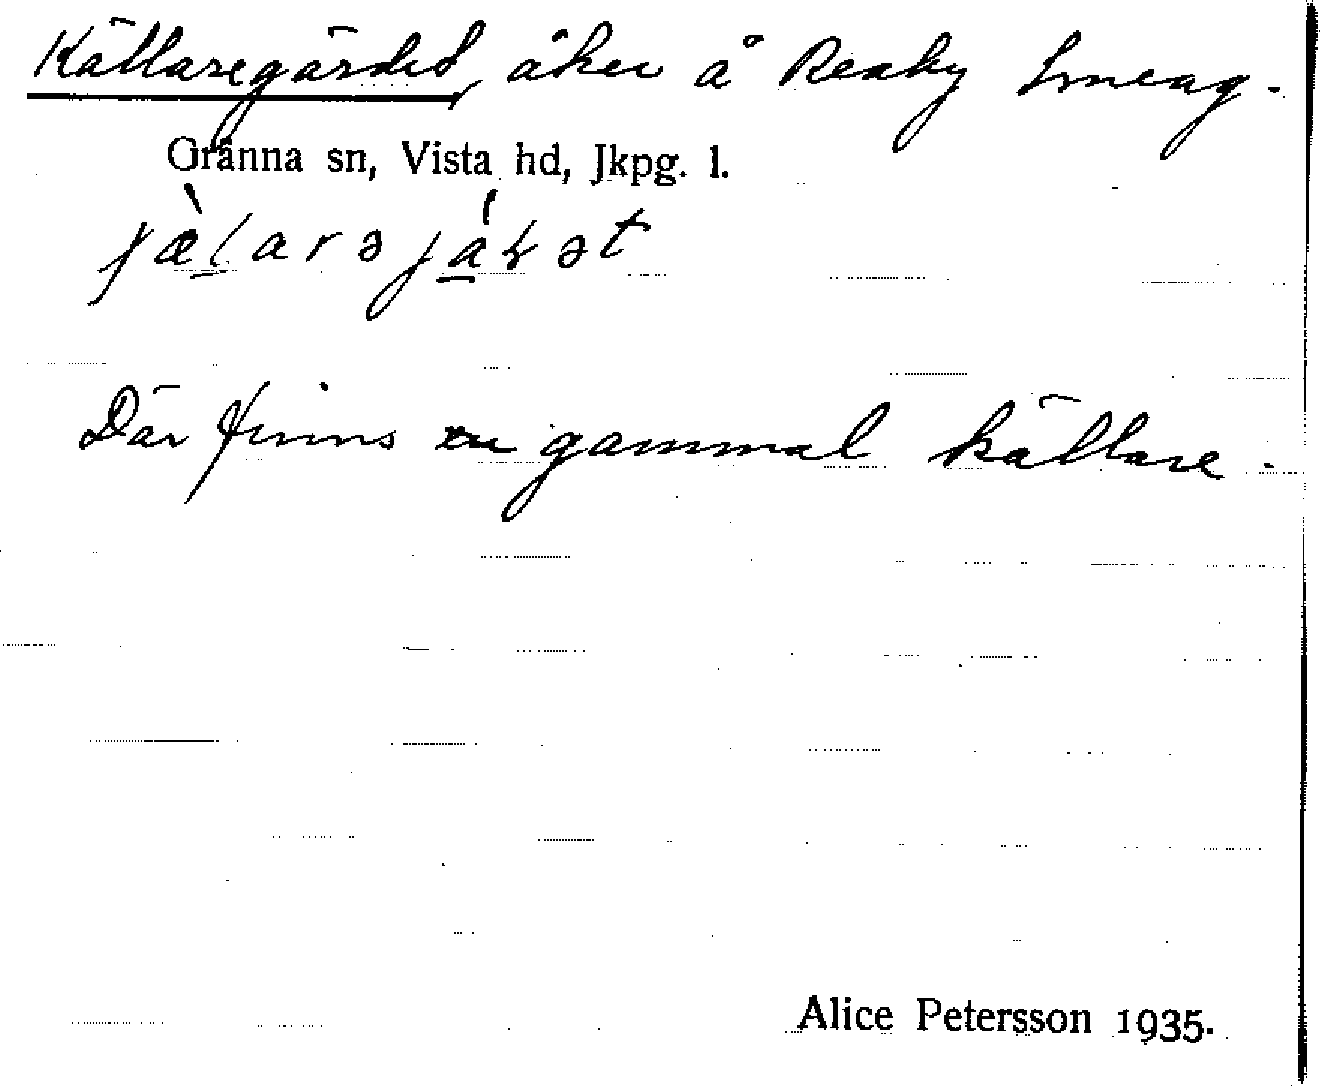 Källaregärdet, åker å Reaby Smeag.
Gränna sn, Vista hd, Jkpg. l.
Där finns en gammal källare.
Alice Petersson 1935.